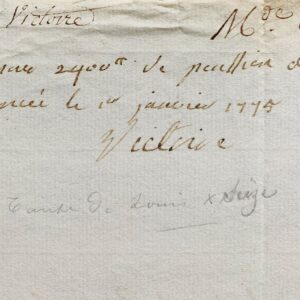 Victoire Mde
2400tt de pention
le 1er janvier 1775
Victoire
tante de Louis Seize